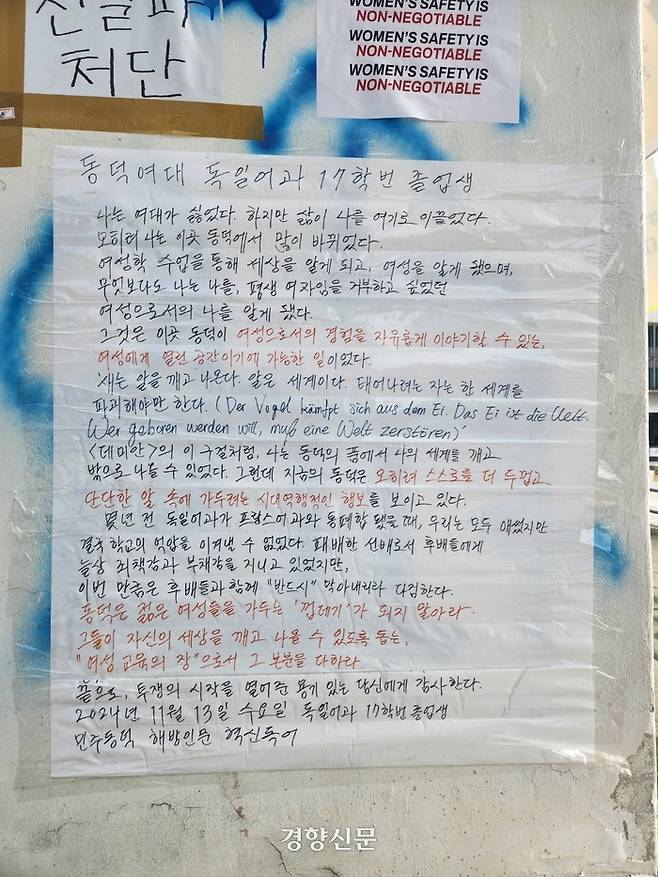 친일파
처단
WOMEN'S SAFETY IS
NON-NEGOTIABLE
WOMEN'S SAFETY IS
NON-NEGOTIABLE
WOMEN'S SAFETY IS
NON-NEGOTIABLE
동덕여대 독일어과 17학번 졸업생
나는 여대가 싫었다. 하지만 삶이 나를 여기로 이끌었다.
오히려 나는 이곳 동덕에서 많이 바뀌었다.
여성학 수업을 통해 세상을 알게 되고, 여성을 알게 됐으며,
무엇보다도 나는 나를, 평생 여자임을 거부하고 싶었던
여성으로서의 나를 알게 됐다.
그것은 이곳 동덕이 여성으로서의 경험을 자유롭게 이야기할 수 있는,
여성에게 열린 공간이기에 가능한 일이었다.
'새는 알을 깨고 나온다. 알은 세계이다. 태어나려는 자는 한 세계를
파괴해야만 한다. (Der Vogel kämpft sich aus dem Ei. Das Ei ist die Welt.
Wer geboren werden will, muß eine Welt zerstören)'
<데미안>의 이 구절처럼, 나는 동덕의 품에서 나의 세계를 깨고
밖으로 나올 수 있었다. 그런데 지금의 동덕은 오히려 스스로를 더 두껍고
단단한 알 속에 가두려는 시대역행적인 행보를 보이고 있다.
몇년 전 독일어과가 프랑스어과와 통폐합 됐을 때, 우리는 모두 애썼지만
결국 학교의 억압을 이겨낼 수 없었다. 패배한 선배로서 후배들에게
늘상 죄책감과 부채감을 지니고 있었지만,
이번 만큼은 후배들과 함께 "반드시" 막아내리라 다짐한다.
동덕은 젊은 여성들을 가두는 '껍데기'가 되지 말아라.
그들이 자신의 세상을 깨고 나올 수 있도록 돕는,
"여성 교육의 장"으로서 그 본분을 다하라.
끝으로, 투쟁의 시작을 열어준 용기 있는 당신에게 감사한다.
2024년 11월 13일 수요일 독일어과 17학번 졸업생
민주동덕 해방인문 혁신독어
경향신문